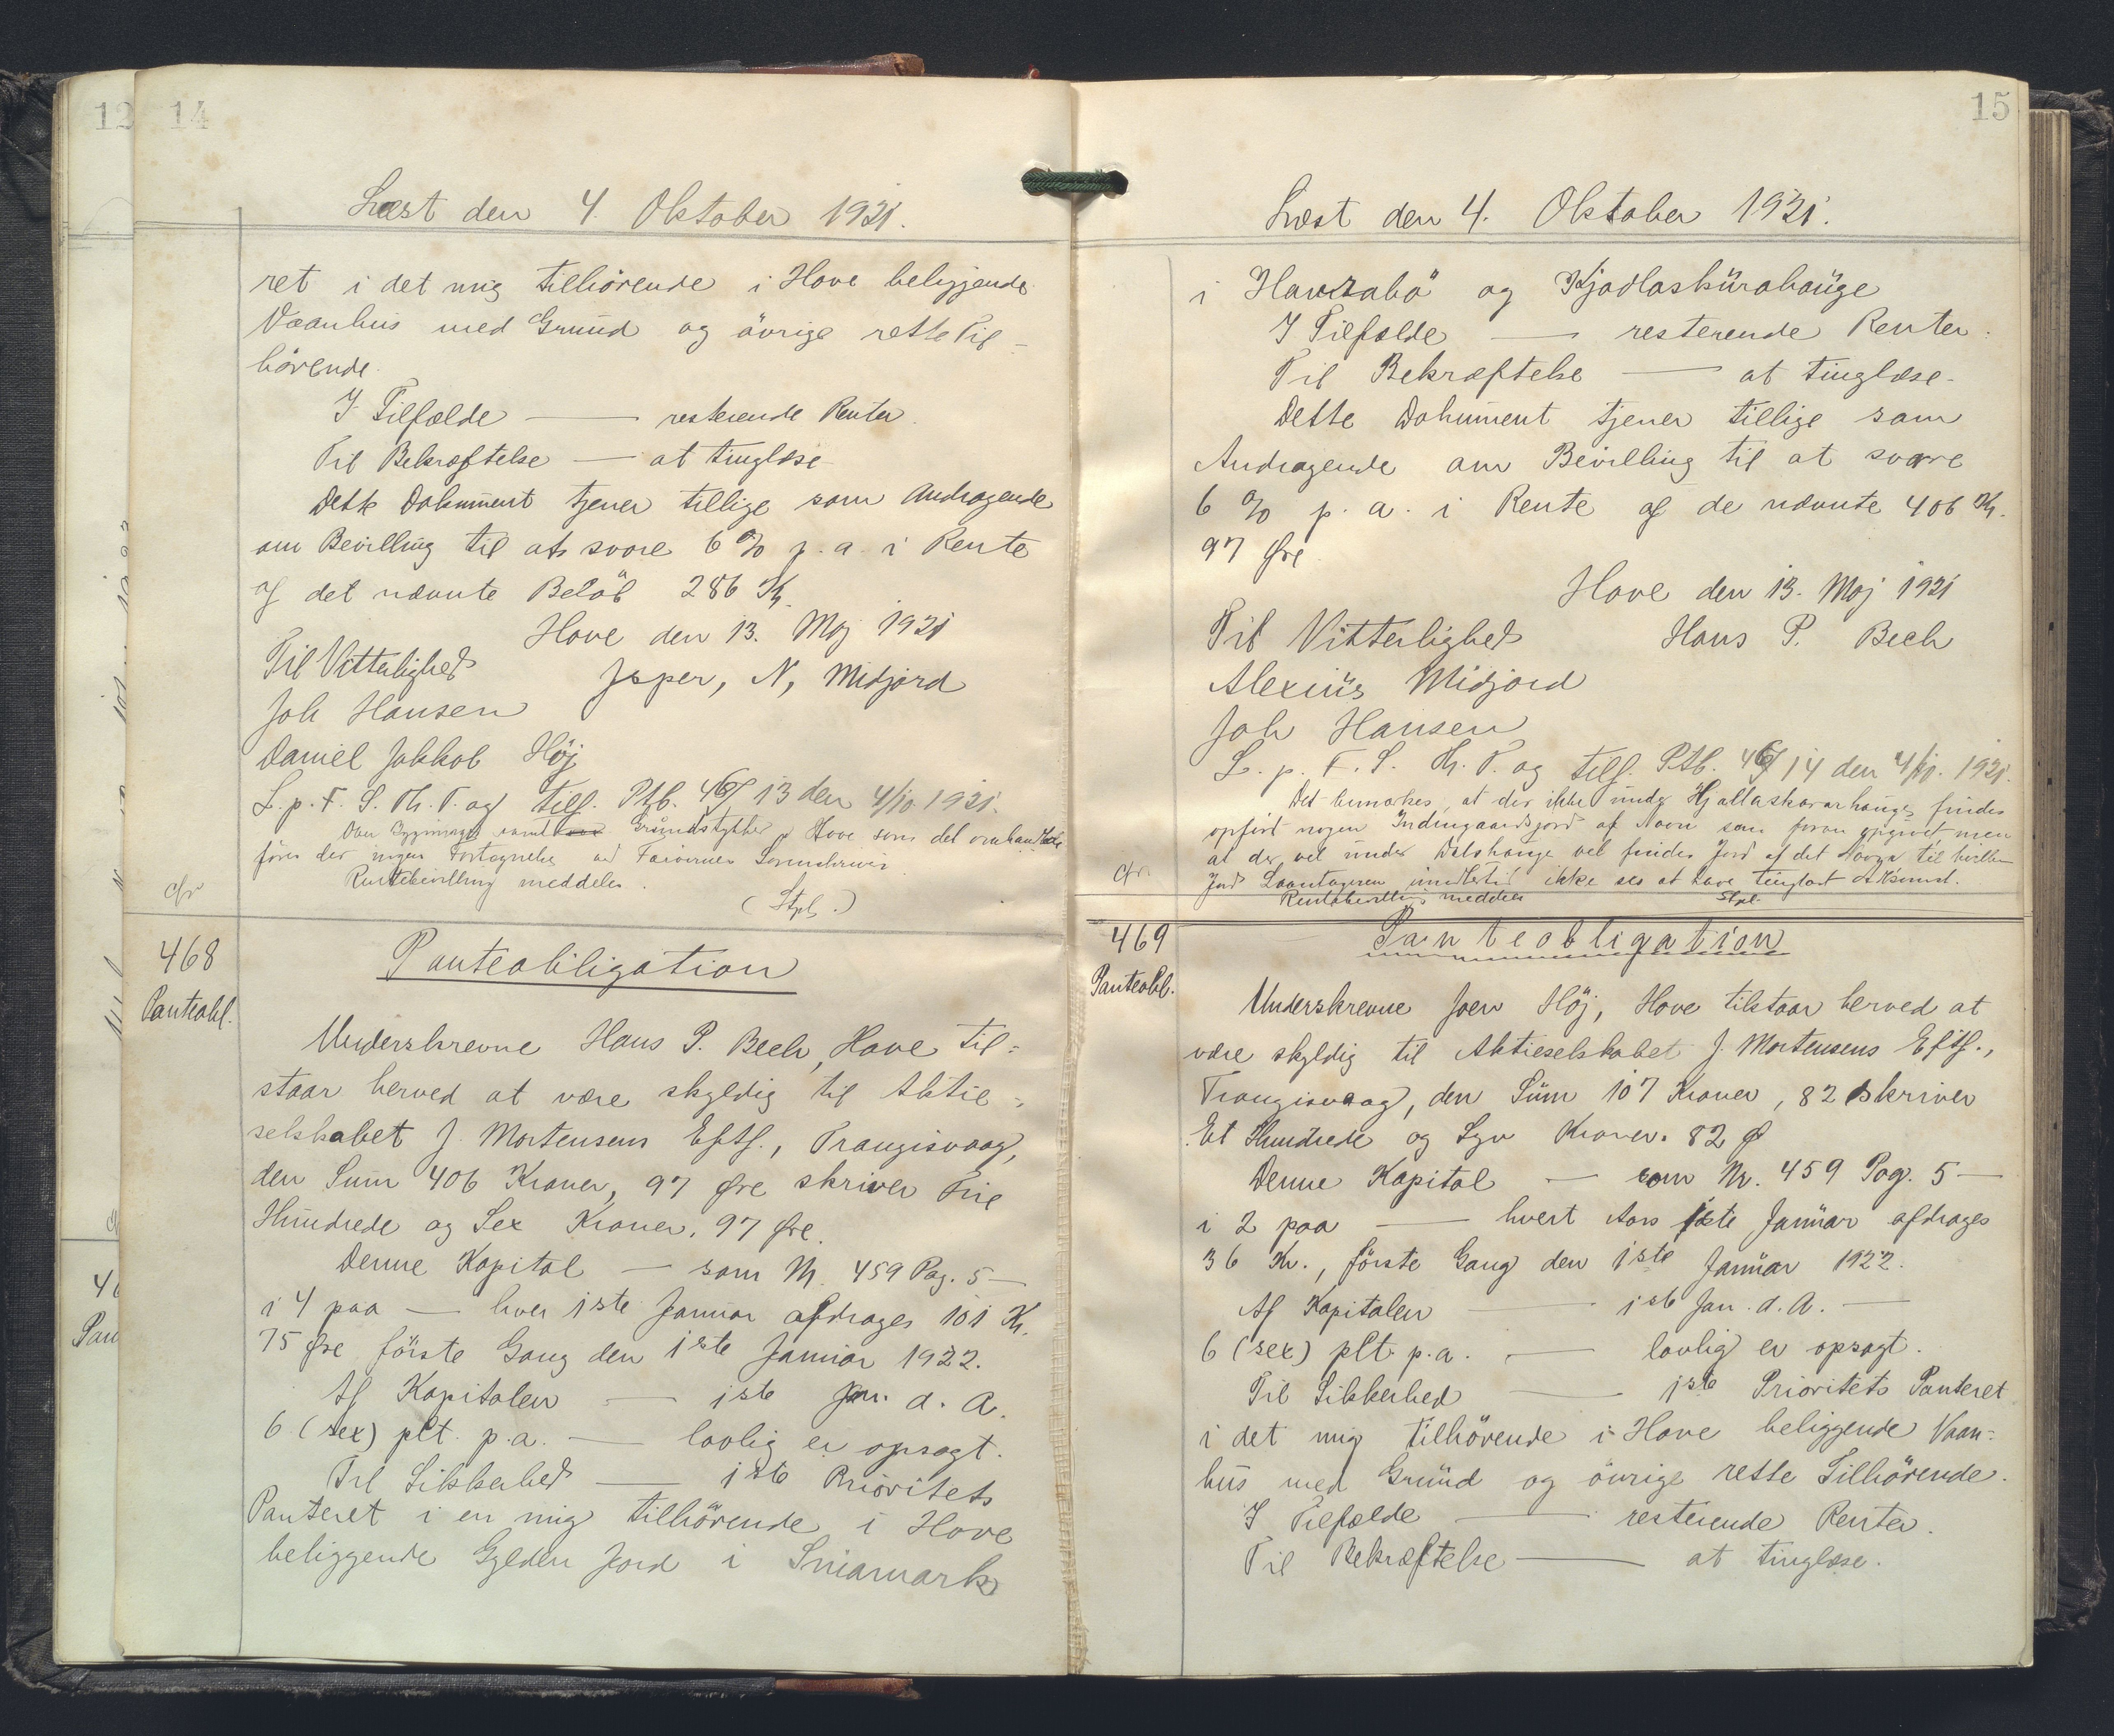 12
14
Læst den 4. Oktober 1921.
ret i det mig tilhörende i Hove beliggende
Vaanhus med Grund og övrige rette Til-
hörende.
I Tilfælde — resterende Renter.
Til Bekræftelse — at tinglæse
Dette Dokument tjener tillige som Andragende
om Bevilling til at svare 6 % p. a. i Rente
af det nævnte Belöb 286 Kr.
Hove den 13. Maj 1921
Til Vitterlighed
Jsper, N, Midjord
Joh Hansen
Daniel Jakkob Höj
L. p. F. S. Th. P. og tilf. Ptb. 13 den 4/10 1921.
Den Bygning samt Grundstykke i Hove som det omhandles
föres der ingen Fortegnelse ved Færöernes Sorenskriveri.
Rentebevilling meddeles.
cfr
(Stpl.)
468
Panteobligation
Panteobl.
Underskrevne Hans P. Bech, Hove til-
staar herved at være skyldig til Aktie-
selskabet J. Mortensens Eftf., Trangisvaag,
den Sum 406 Kroner, 97 Øre skriver Fire
Hundrede og Sex Kroner, 97 Øre.
Denne Kapital — som Nr. 459 Pag. 5 —
i 4 paa — hver 1ste Januar afdrages 101 Kr.
75 Øre förste Gang den 1ste Januar 1922.
Af Kapitalen — 1ste Jan. d. A.
6 (sex) pCt. p.a. — lovlig er opsagt.
Til Sikkerhed — 1ste Prioritets
Panteret i en mig tilhörende i Hove
beliggende Gylden Jord i
15
Læst den 4. Oktober 1921.
i og
I Tilfælde — resterende Renter.
Til Bekræftelse — at tinglæse.
Dette Dokument tjener tillige som
Andragende om Bevilling til at svare
6 % p. a. i Rente af de nævnte 406 Kr.
97 Øre
Hove den 13. Maj 1921
Til Vitterlighed
Hans P. Bech
Alexius Midjord
Joh Hansen
L. p. F. S. Th. P. og tilf. Ptb. 14 den 4/10. 1921.
Det bemærkes, at der ikke under findes
opfört nogen Indengaardsjord af Navn som foran opgivet men
at der vel under vel findes Jord af det Navn til hvilken
Jord Laantageren imidlertid ikke ses at have tinglæst Adkomst.
cfr.
Rentebevilling meddeles
Stpl.
469
Panteobligation
Panteobl.
Underskrevne Joen Höj, Hove tilstaar herved at
være skyldig til Aktieselskabet J. Mortensens Eftf.,
Trangisvaag, den Sum 107 Kroner, 82 skriver
Et Hundrede og Syv Kroner. 82 Ø
Denne Kapital — som Nr. 459 Pag. 5 —
i 2 paa — hvert Aars 1ste Januar afdrages
36 Kr., förste Gang den 1ste Januar 1922.
Af Kapitalen — 1ste Jan. d. A. —
6 (sex) pCt. p.a. — lovlig er opsagt.
Til Sikkerhed — 1ste Prioritets Panteret
i det mig tilhörende i Hove beliggende Vaan-
hus med Grund og övrige rette Tilhörende.
I Tilfælde — resterende Renter.
Til Bekræftelse — at tinglæse.